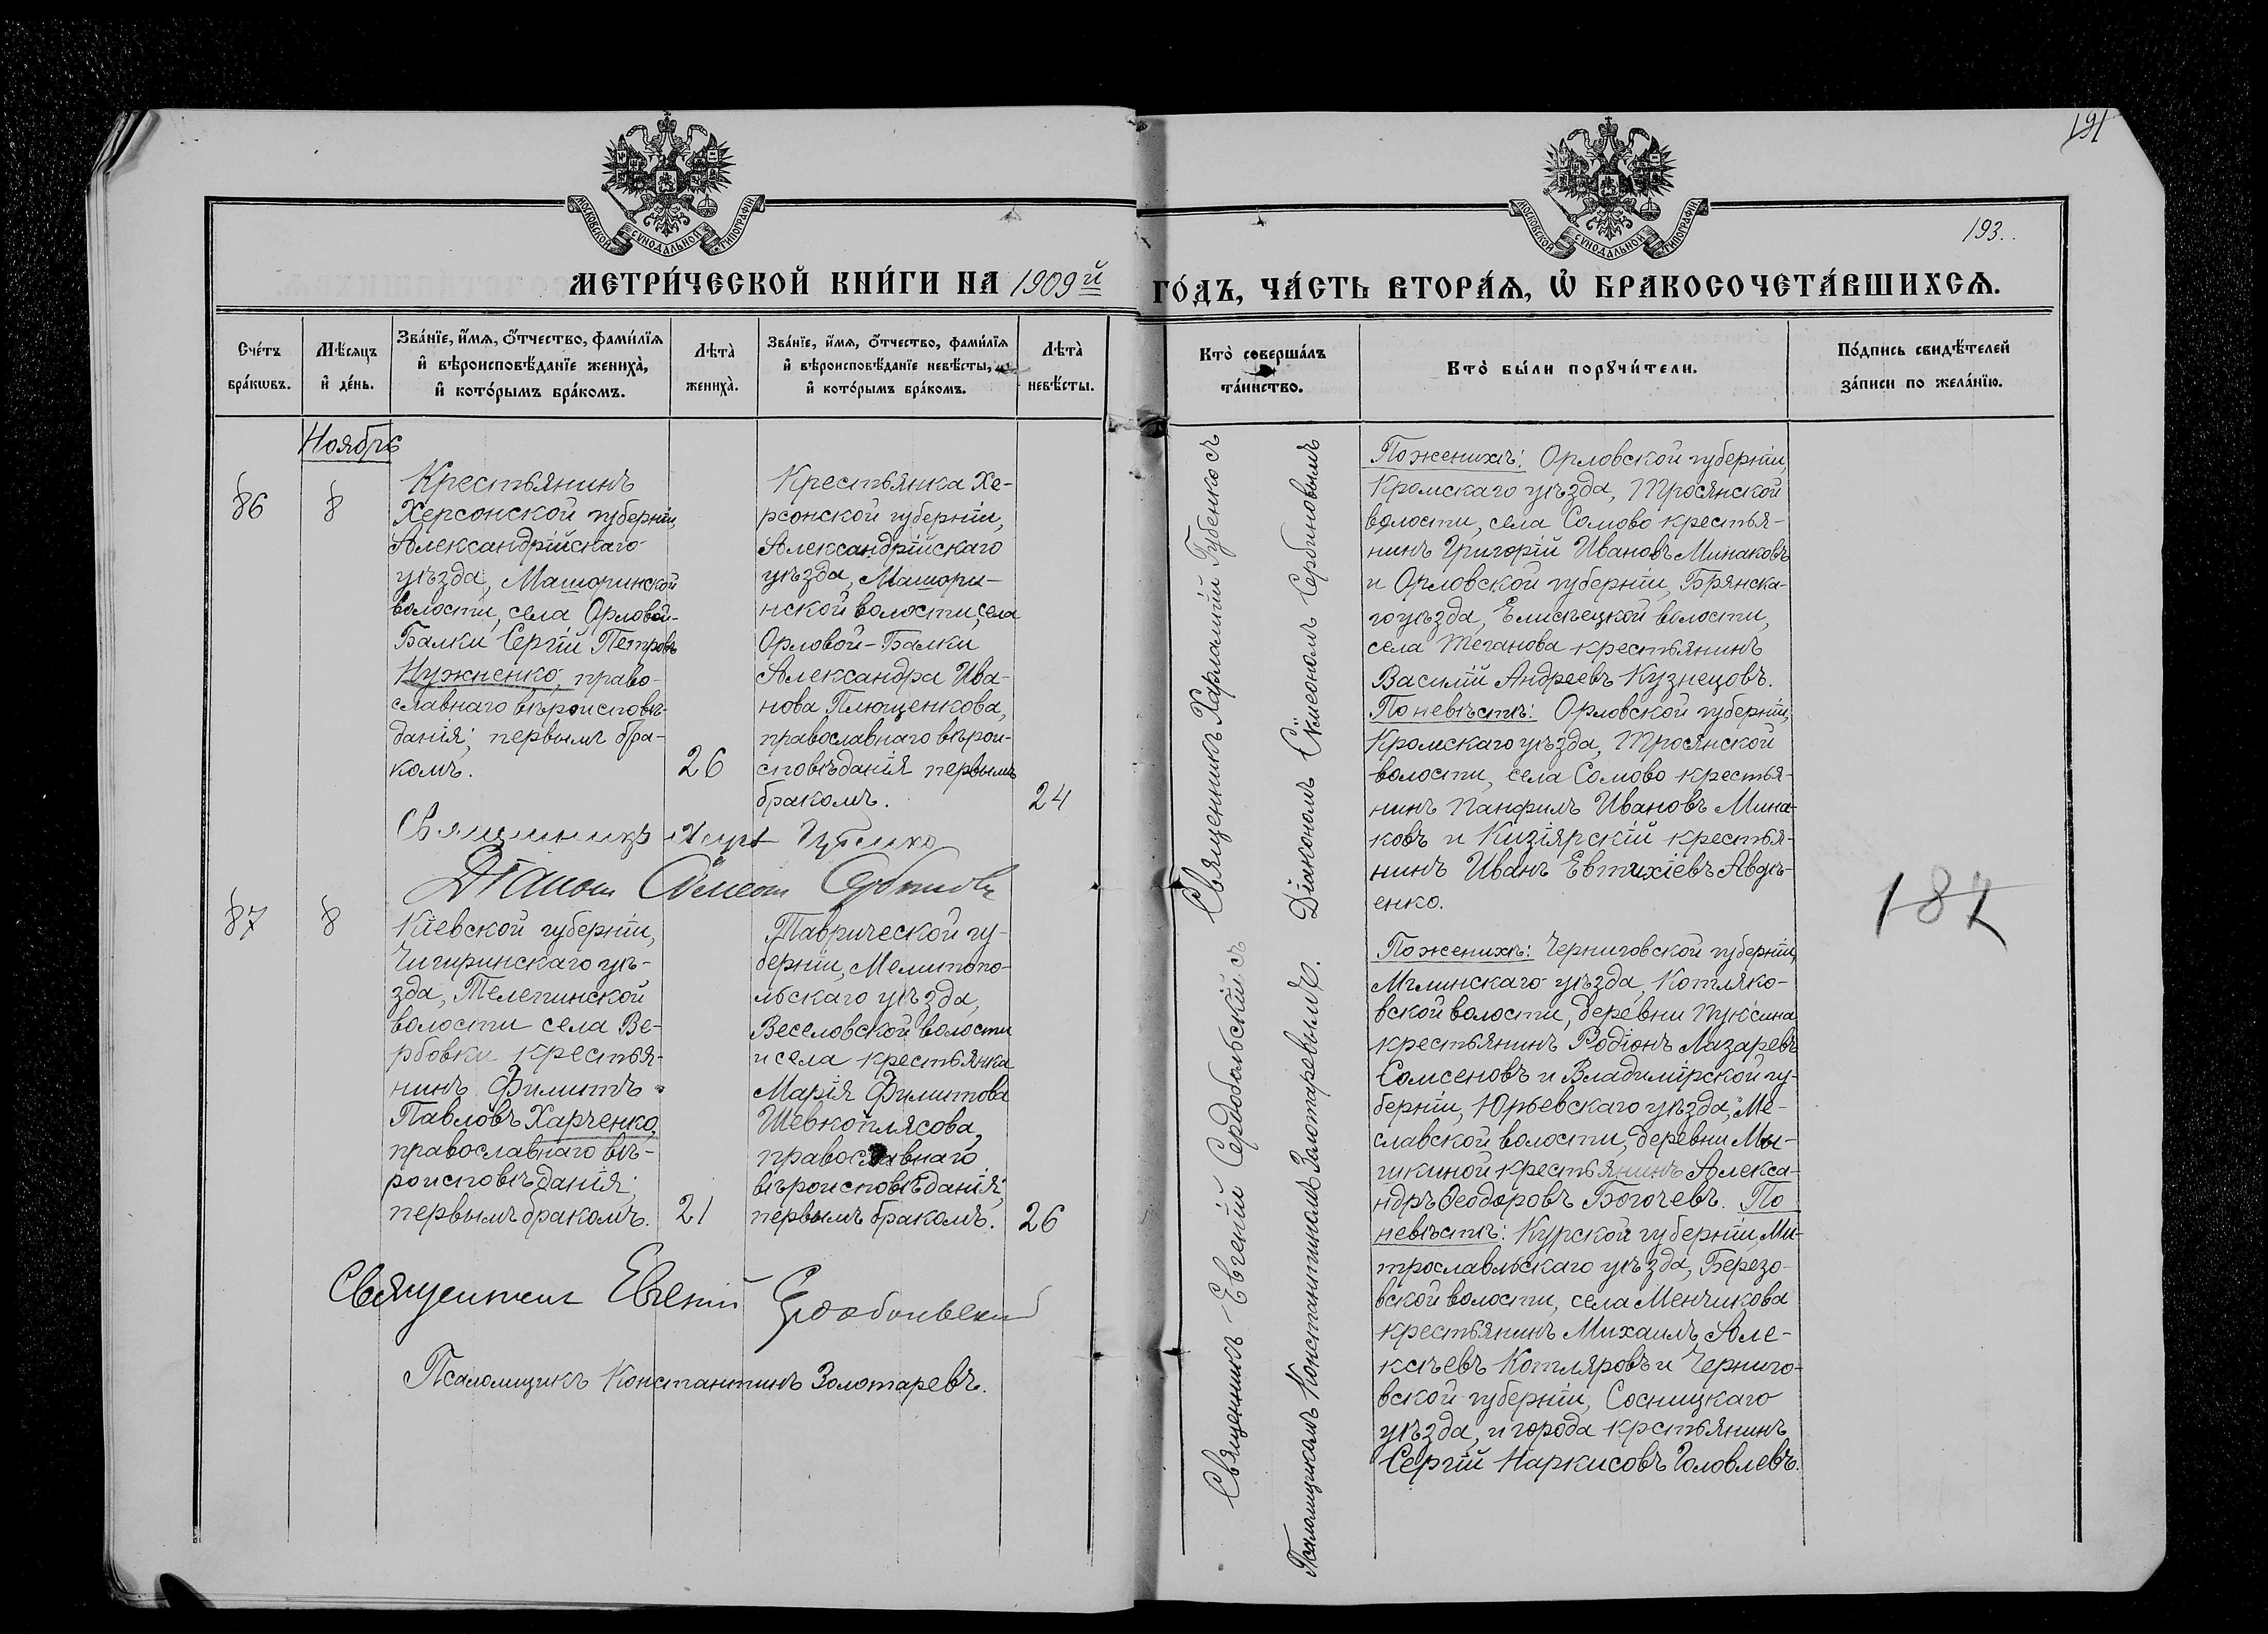 191
МОСКОВСКОЙ СѴНОДАЛЬНОЙ ТИПОГРАФІИ
МОСКОВСКОЙ СѴНОДАЛЬНОЙ ТИПОГРАФІИ
193.
МЕТРИ́ЧЕСКОЙ КНИ́ГИ НА 1909й ГО́ДЪ, ЧА́СТЬ ВТОРА́Ѧ, Ѽ БРАКОСОЧЕТА́ВШИХСѦ.
Сче́тъ
бра́кѡвъ.
Мѣ́сяцъ
и҆ де́нь.
Зва́нїе, и҆́мѧ, ѻ҆́тчество, фами́лїѧ
и҆ вѣроисповѣ́данїе жениха̀,
и҆ кото́рымъ бра́комъ.
Лѣта̀
жениха̀.
Зва́нїе, и҆́мѧ, ѻ҆́тчество, фами́лїѧ
и҆ вѣроисповѣ́данїе невѣ́сты,
и҆ кото́рымъ бра́комъ.
Лѣта̀
невѣ́сты.
Кто̀ соверша́лъ
та́инство.
Кто̀ бы́ли порꙋчи́тели.
По́дпись свидѣ́телей
за́писи по жела́нїю.
Ноябрь
86
8
Крестьянинъ
Херсонской губерніи,
Александрійскаго
уѣзда, Машоринской
волости, села Орловой-
Балки Сергій Петровъ
Нужненко, право-
славнаго вѣроисповѣ-
данія; первымъ бра-
комъ.
26
Крестьянка Хе-
рсонской губерніи,
Александрійскаго
уѣзда, Машори-
нской волости, села
Орловой-Балки
Александра Ива-
нова Плющенкова,
православнаго вѣрои-
сповѣданія первымъ
бракомъ.
24
Священникъ Губенко
Діаконъ Сѷмеонъ Сербиновъ
Священникъ Харлампій Губенко съ
Діакономъ Сѷмеономъ Сербиновымъ
По женихѣ: Орловской губерніи,
Кромскаго уѣзда, Тросянской
волости, села Сомово крестья-
нинъ Григорій Ивановъ Минаковъ
и Орловской губерніи, Брянска-
го уѣзда, Елисѣецкой волости,
села Теганова крестьянинъ
Василій Андреевъ Кузнецовъ.
По невѣстѣ: Орловской губерніи,
Кромскаго уѣзда, Тросянской
волости, села Сомово крестья-
нинъ Панфилъ Ивановъ Мина-
ковъ и Кизіярскій крестья-
нинъ Иванъ Евтихіевъ Авдѣ-
енко.
87
8
Кіевской губерніи,
Чигиринскаго уѣ-
зда, Телепинской
волости села Ве-
рбовки крестья-
нинъ Филиппъ
Павловъ Харченко,
православнаго вѣ-
роисповѣданія;
первымъ бракомъ.
21
Таврической гу-
берніи, Мелитопо-
льскаго уѣзда,
Веселовской волости
и села крестьянка
Марія Филиппова
Шевкоплясова,
православнаго
вѣроисповѣданія;
первымъ бракомъ.
26
Священникъ Евгеній Сердобольскій
Псаломщикъ Константинъ Золотаревъ.
Священникъ Евгеній Сердобольскій съ
Псаломщикомъ Константиномъ Золотаревымъ.
По женихѣ: Черниговской губерніи,
Мглинскаго уѣзда, Котляко-
вской волости, деревни Пуксина
крестьянинъ Родіонъ Лазаревъ
Самсеновъ и Владимірской гу-
берніи, Юрьевскаго уѣзда, Ме-
славской волости, деревни Мы-
шкиной крестьянинъ Алекса-
ндръ Ѳеодоровъ Богочевъ. По
невѣстѣ: Курской губерніи, Ми-
трославльскаго уѣзда, Березо-
вской волости, села Менчикова
крестьянинъ Михаилъ Але-
ксѣевъ Котляровъ и Черниго-
вской губерніи, Сосницкаго
уѣзда, и города крстьянинъ
Сергій Наркисовъ Головлевъ.
187